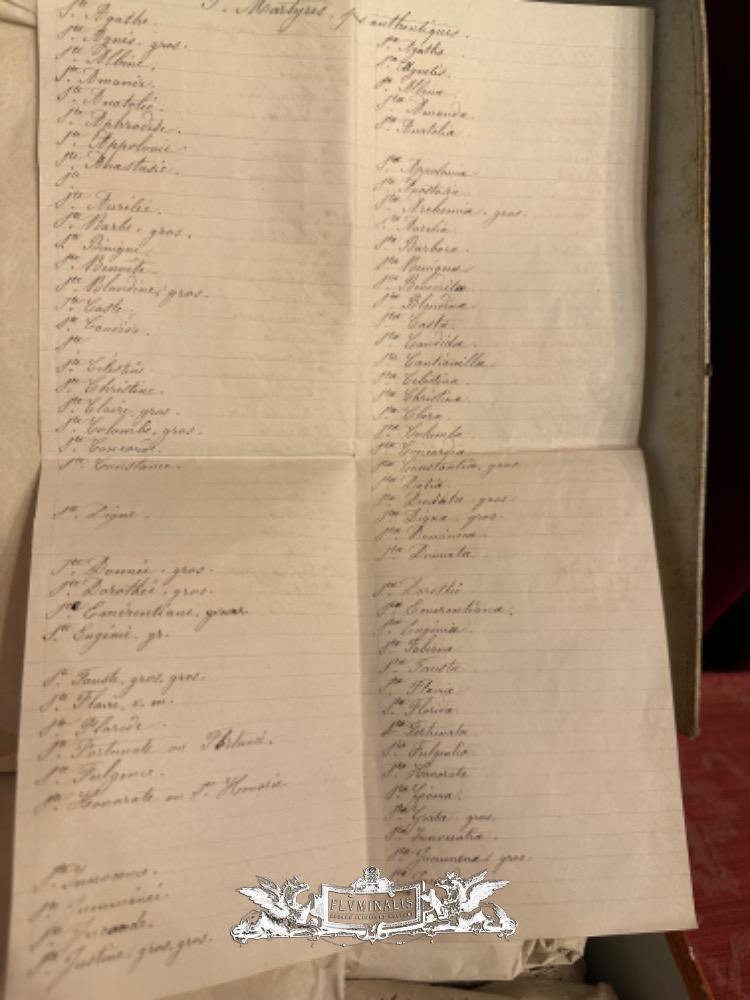 Stes Martyres, authentiques.
Ste Agathe.
Ste Agnès, gros.
Ste Albine.
Ste Amance.
Ste Anatolie.
Ste Aphrodise.
Ste Appolonie.
Ste Anastasie.
Ste
Ste Aurélie.
Ste Barbe, gros.
Ste Bénigne.
Ste Benoîte.
Ste Blandine, gros.
Ste Caste.
Ste Candide.
Ste
Ste Célestine
Ste Christine.
Ste Claire, gros.
Ste Colombe, gros.
Ste Concorde.
Ste Constance.
Ste Digne.
Ste Donnée, gros.
Ste Dorothée, gros.
Ste Emérentiane,
Ste Eugénie, gr.
Ste Fauste, gros, gros.
Ste Flavie, v. m.
Ste Floride.
Ste Fortunate ou Fortunée.
Ste Fulgence.
Ste Honorate ou Ste Honorée.
Ste Innocence.
Ste
Ste Juconde.
Ste Justine, gros, gros.
Sta Agatha.
Sta Agnetis.
Sta Albina.
Sta Amanda.
Sta Anatolia.
Sta Appolonia.
Sta Anastasia.
Sta Archemia, gros.
Sta Aurelia.
Sta Barbara.
Sta Benigna.
Sta Benedicta.
Sta Blandina.
Sta Casta.
Sta Candida.
Sta Cantianilla.
Sta Celestina.
Sta Christina.
Sta Clara.
Sta Columba.
Sta Concordia.
Sta Constantia, gros.
Sta Delia.
Sta Deodata, gros.
Sta Digna, gros.
Sta Dominica.
Sta Donata.
Sta Dorothé
Sta Emerentiana.
Sta Eugénia.
Sta Fabiana.
Sta Fausta.
Sta Flavia.
Sta Florida.
Sta Fortunata.
Sta Fulgentia.
Sta Honorata.
Sta
Sta Grata, gros.
Sta Innocentia.
Sta gros.
FLVMINALIS